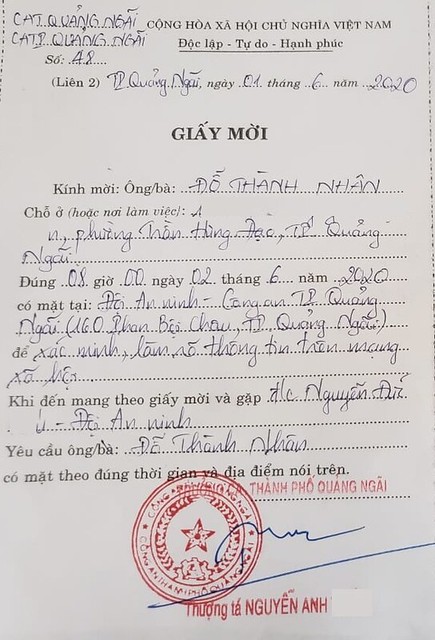 CAT QUẢNG NGÃI
CATP QUẢNG NGÃI
Số: 48
CỘNG HÒA XÃ HỘI CHỦ NGHĨA VIỆT NAM
Độc lập - Tự do - Hạnh phúc
(Liên 2) TP Quảng Ngãi, ngày 01 tháng 6 năm 2020
GIẤY MỜI
Kính mời: Ông/bà: ĐỖ THÀNH NHÂN
Chỗ ở (hoặc nơi làm việc):
phường Trần Hưng Đạo, TP Quảng
Ngãi
Đúng 08 giờ 00 ngày 02 tháng 6 năm 2020
có mặt tại: Đội An ninh - Công an TP Quảng
Ngãi (160 Phan Bội Châu, TP Quảng Ngãi)
để xác minh, làm rõ thông tin trên mạng
xã hội
Khi đến mang theo giấy mời và gặp đ/c Nguyễn Đức
- Đội An ninh
Yêu cầu ông/bà: ĐỖ Thành Nhân
có mặt theo đúng thời gian và địa điểm nói trên.
THÀNH PHỐ QUẢNG NGÃI
Thượng tá NGUYỄN ANH